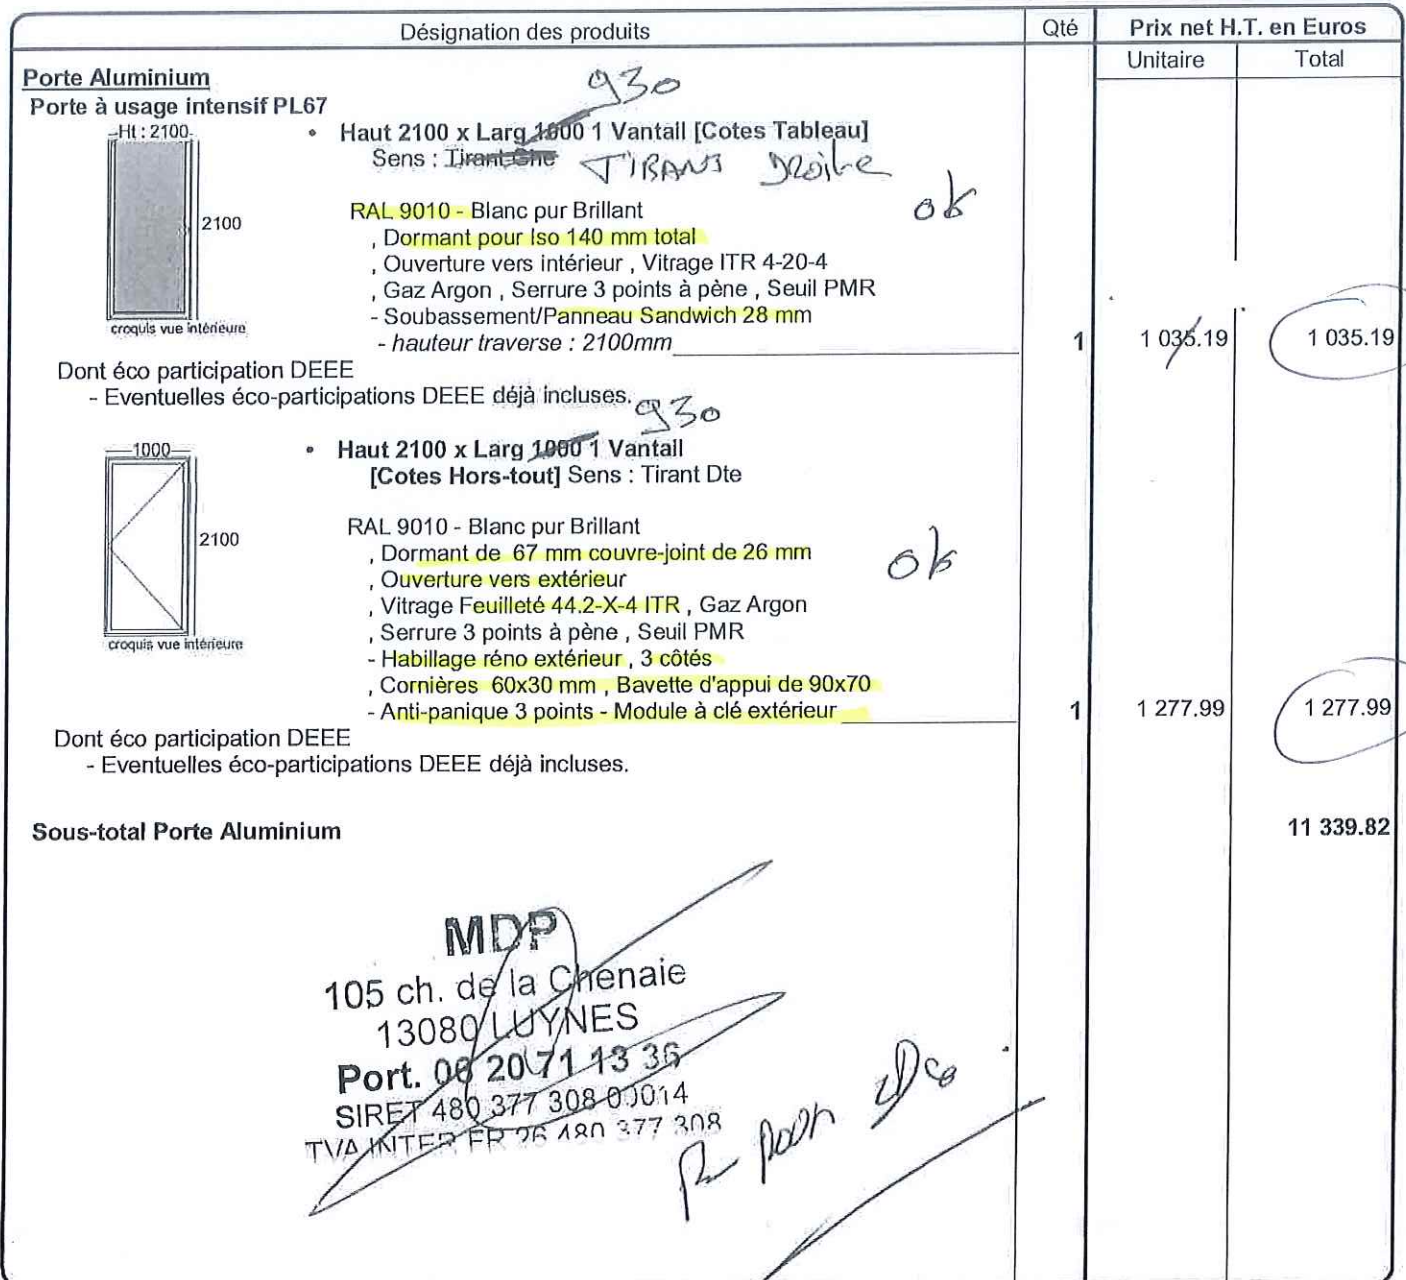 Désignation des produits
Qté
Prix net H.T. en Euros
Unitaire
Total
Porte Aluminium
Porte à usage intensif PL67
930
Ht : 2100
• Haut 2100 x Larg 1000 1 Vantail [Cotes Tableau]
Sens : Tirant Ghe TIRANT DROITE
2100
croquis vue intérieure
RAL 9010 - Blanc pur Brillant
ok
, Dormant pour Iso 140 mm total
, Ouverture vers intérieur , Vitrage ITR 4-20-4
, Gaz Argon , Serrure 3 points à pène , Seuil PMR
- Soubassement/Panneau Sandwich 28 mm
- hauteur traverse : 2100mm
1
1 035.19
1 035.19
Dont éco participation DEEE
- Eventuelles éco-participations DEEE déjà incluses.
930
1000
• Haut 2100 x Larg 1000 1 Vantail
[Cotes Hors-tout] Sens : Tirant Dte
2100
croquis vue intérieure
RAL 9010 - Blanc pur Brillant
, Dormant de 67 mm couvre-joint de 26 mm
ok
, Ouverture vers extérieur
, Vitrage Feuilleté 44.2-X-4 ITR , Gaz Argon
, Serrure 3 points à pène , Seuil PMR
- Habillage réno extérieur , 3 côtés
, Cornières 60x30 mm , Bavette d'appui de 90x70
- Anti-panique 3 points - Module à clé extérieur
1
1 277.99
1 277.99
Dont éco participation DEEE
- Eventuelles éco-participations DEEE déjà incluses.
Sous-total Porte Aluminium
11 339.82
MDP
105 ch. de la Chenaie
13080 LUYNES
Port. 06 20 71 13 36
SIRET 480 377 308 00014
TVA INTER FR 26 480 377 308